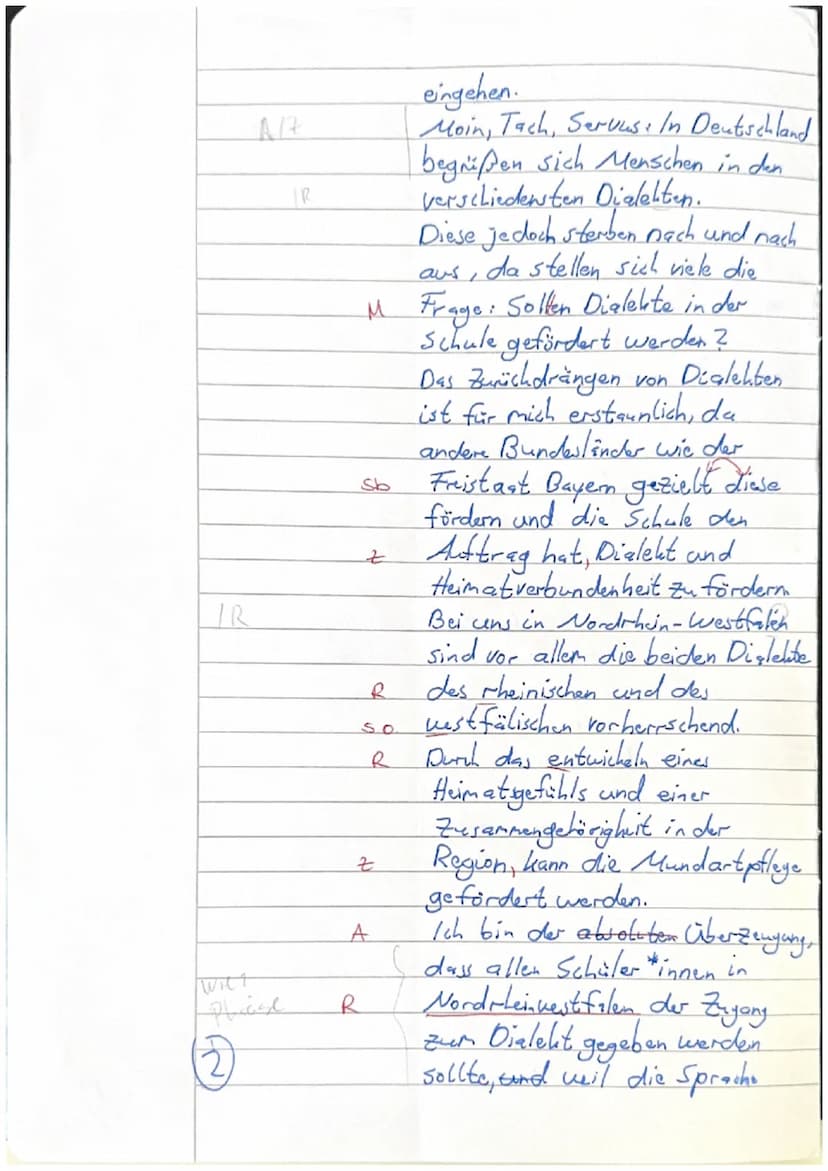 eingehen.
A/Z Moin, Tach, Servus: In Deutschland
begrüßen sich Menschen in den
IR verschiedensten Dialekten.
Diese jedoch sterben nach und nach
aus, da stellen sich viele die
M Frage: Sollten Dialekte in der
Schule gefördert werden?
Das Zurückdrängen von Dialekten
ist für mich erstaunlich, da
andere Bundesländer wie der
Sb Freistaat Bayern gezielt diese
fördern und die Schule den
Z Auftrag hat, Dialekt und
Heimatverbundenheit zu fördern.
IR Bei uns in Nordrhein-Westfalen
sind vor allem die beiden Dialekte
R des rheinischen und des
so westfälischen vorherrschend.
R Durch das entwickeln eines
Heimatgefühls und einer
Zusammengehörigkeit in der
Z Region, kann die Mundartpflege
gefördert werden.
A Ich bin der absoluten Überzeugung,
dass allen Schüler*innen in
Wie?
Phrase R Nordrheinwestfalen der Zugang
zum Dialekt gegeben werden
2 sollte, und weil die Sprache